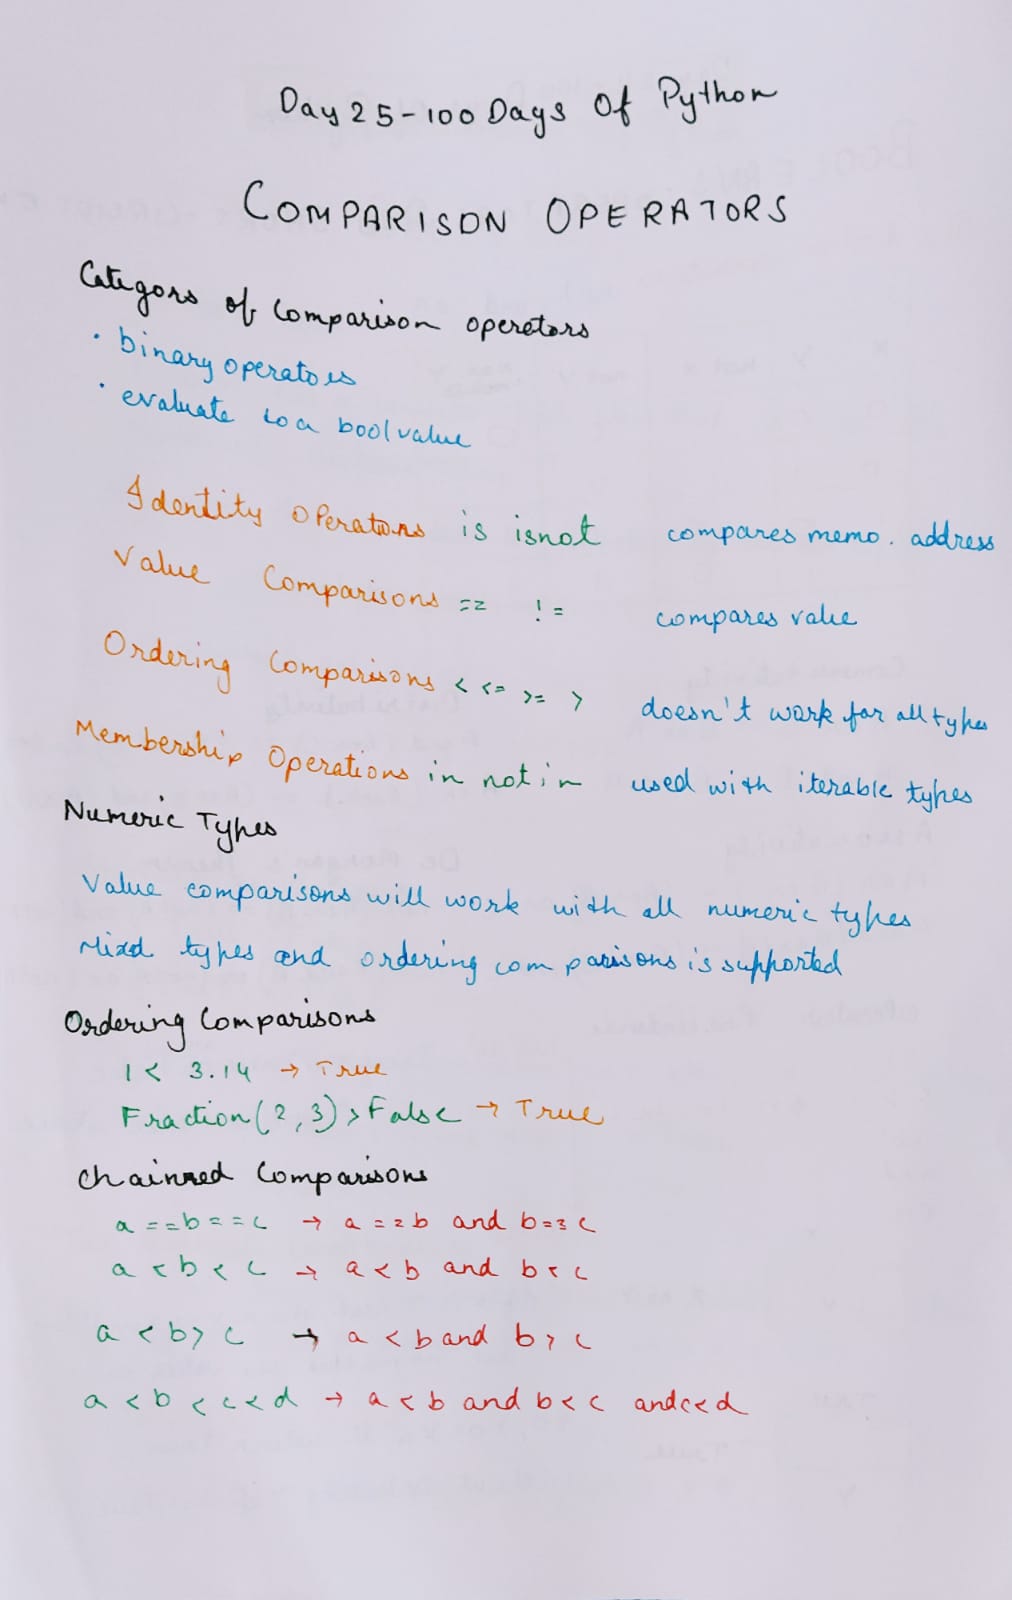 Day 25 - 100 Days Of Python
COMPARISON OPERATORS
Categors of Comparison operators
• binary operators
• evaluate to a bool value
Identity Operators is is not compares memo. address
Value Comparisons == != compares value
Ordering Comparisons < <= >= > doesn't work for all types
Membership Operations in not in used with iterable types
Numeric Types
Value comparisons will work with all numeric types
Mixed types and ordering comparisons is supported
Ordering Comparisons
1 < 3.14 → True
Fraction(2,3) > False → True
Chainned Comparisons
a == b == c → a == b and b == c
a < b < c → a < b and b < c
a < b > c → a < b and b > c
a < b < c < d → a < b and b < c and c < d